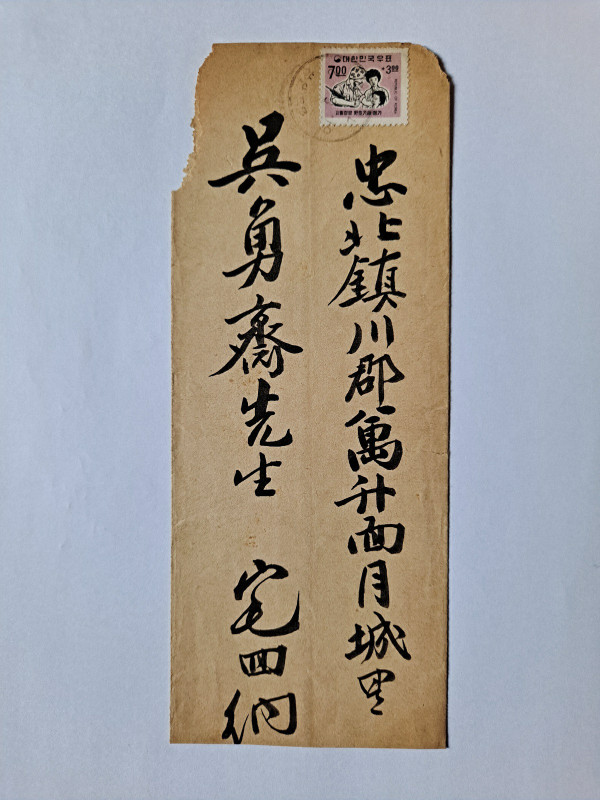 대한민국우표
700 +3 00
忠北鎭川郡萬升面月城里
吳勇齋先生 宅回納